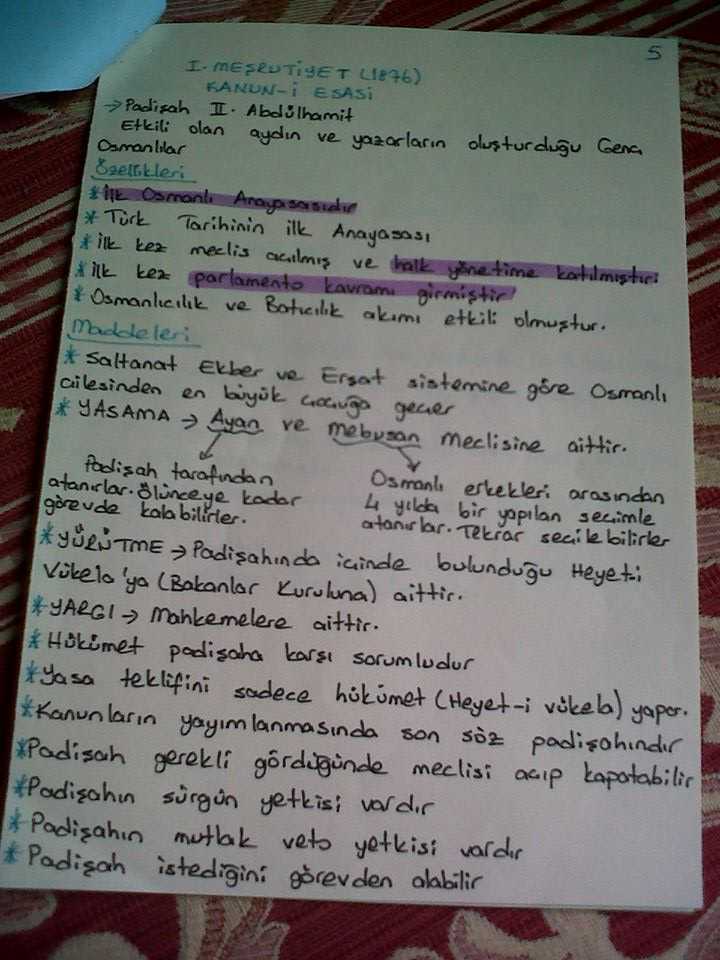 5
I. MEŞRUTİYET (1876)
KANUN-İ ESASİ
→ Padişah II. Abdülhamit
Etkili olan aydın ve yazarların oluşturduğu Genç
Osmanlılar
Özellikleri
* İlk Osmanlı Anayasasıdır
* Türk Tarihinin ilk Anayasası
* İlk kez meclis açılmış ve halk yönetime katılmıştır.
* İlk kez parlamento kavramı girmiştir
* Osmanlıcılık ve Batıcılık akımı etkili olmuştur.
Maddeleri
* Saltanat Ekber ve Erşat sistemine göre Osmanlı
ailesinden en büyük çocuğa geçer
* YASAMA → Ayan ve mebusan Meclisine aittir.
Padişah tarafından
atanırlar. Ölünceye kadar
görevde kalabilirler.
Osmanlı erkekleri arasından
4 yılda bir yapılan seçimle
atanırlar. Tekrar seçilebilirler
* YÜRÜTME → Padişahında içinde bulunduğu Heyet-i
Vükela'ya (Bakanlar Kuruluna) aittir.
* YARGI → Mahkemelere aittir.
* Hükümet padişaha karşı sorumludur
* Yasa teklifini sadece hükümet (Heyet-i vükela) yapar.
* Kanunların yayımlanmasında son söz padişahındır
* Padişah gerekli gördüğünde meclisi açıp kapatabilir
* Padişahın sürgün yetkisi vardır
* Padişahın mutlak veto yetkisi vardır
* Padişah istediğini görevden alabilir